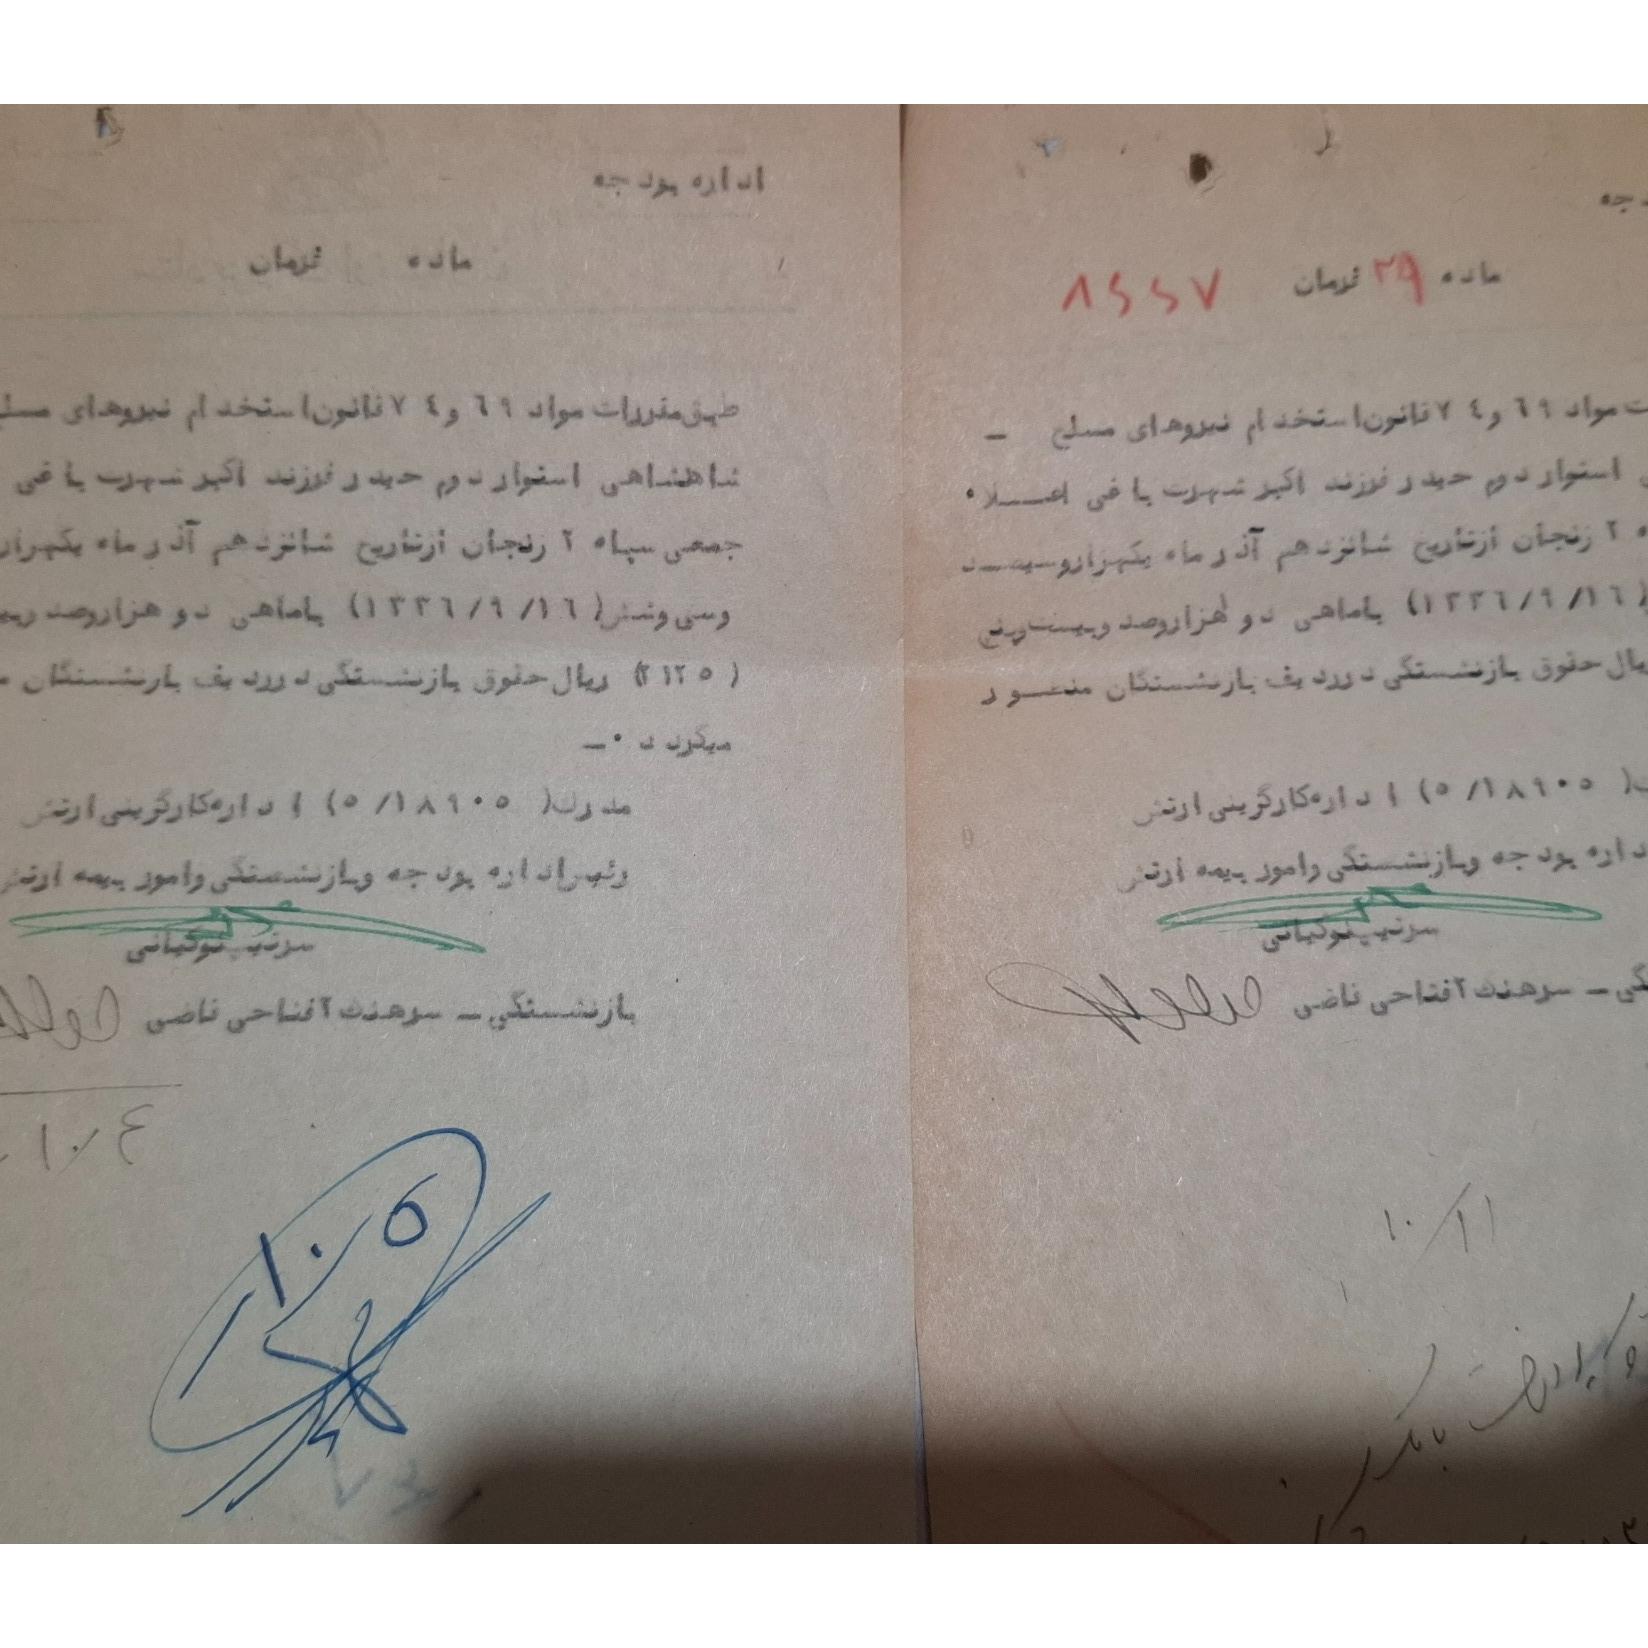 اداره بودجه
ماده فرمان
طبق مقررات مواد ٦٩ و ٧٤ قانون استخدام نیروهای مسلح
شاهنشاهی استوار دوم حیدر فرزند اکبر شهرت یاغی
جمعی سپاه ٢ زنجان ازتاریخ شانزدهم آذر ماه یکهزار
وسی وشش (١٣٣٦/٩/١٦) باماهی دو هزاروصد
(٢١٢٥) ریال حقوق بازنشستگی درردیف بازنشستگان
میگردد ٠ـ
مدرک (٥/١٨٩٠٥) اداره کارگزینی ارتش
رئیس اداره بودجه وبازنشستگی وامور بیمه ارتش
سرتیپ نوکیانی
بازنشستگی ـ سرهنگ ٢ فتاحی قاضی
١٠/٤
١٠/٥
جه
ماده ٢٩ فرمان ٨٤٤٧
ت مواد ٦٩ و ٧٤ قانون استخدام نیروهای مسلح ـ
استوار دوم حیدر فرزند اکبر شهرت یاغی
٢ زنجان ازتاریخ شانزدهم آذر ماه یکهزاروسیصد
(١٣٣٦/٩/١٦) باماهی دو هزاروصد وبیست وپنج
یال حقوق بازنشستگی درردیف بازنشستگان منظور
(٥/١٨٩٠٥) اداره کارگزینی ارتش
داره بودجه وبازنشستگی وامور بیمه ارتش
سرتیپ نوکیانی
گی ـ سرهنگ ٢ فتاحی قاضی
١٠/١١